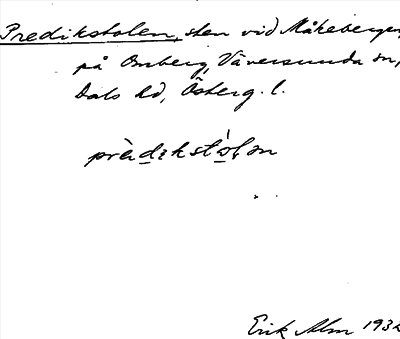 Predikstolen, sten vid Måkebergen,
på Omberg, Väversunda sn,
Dals hd, Österg. l.
prèdikstòlən
Erik Alm 193